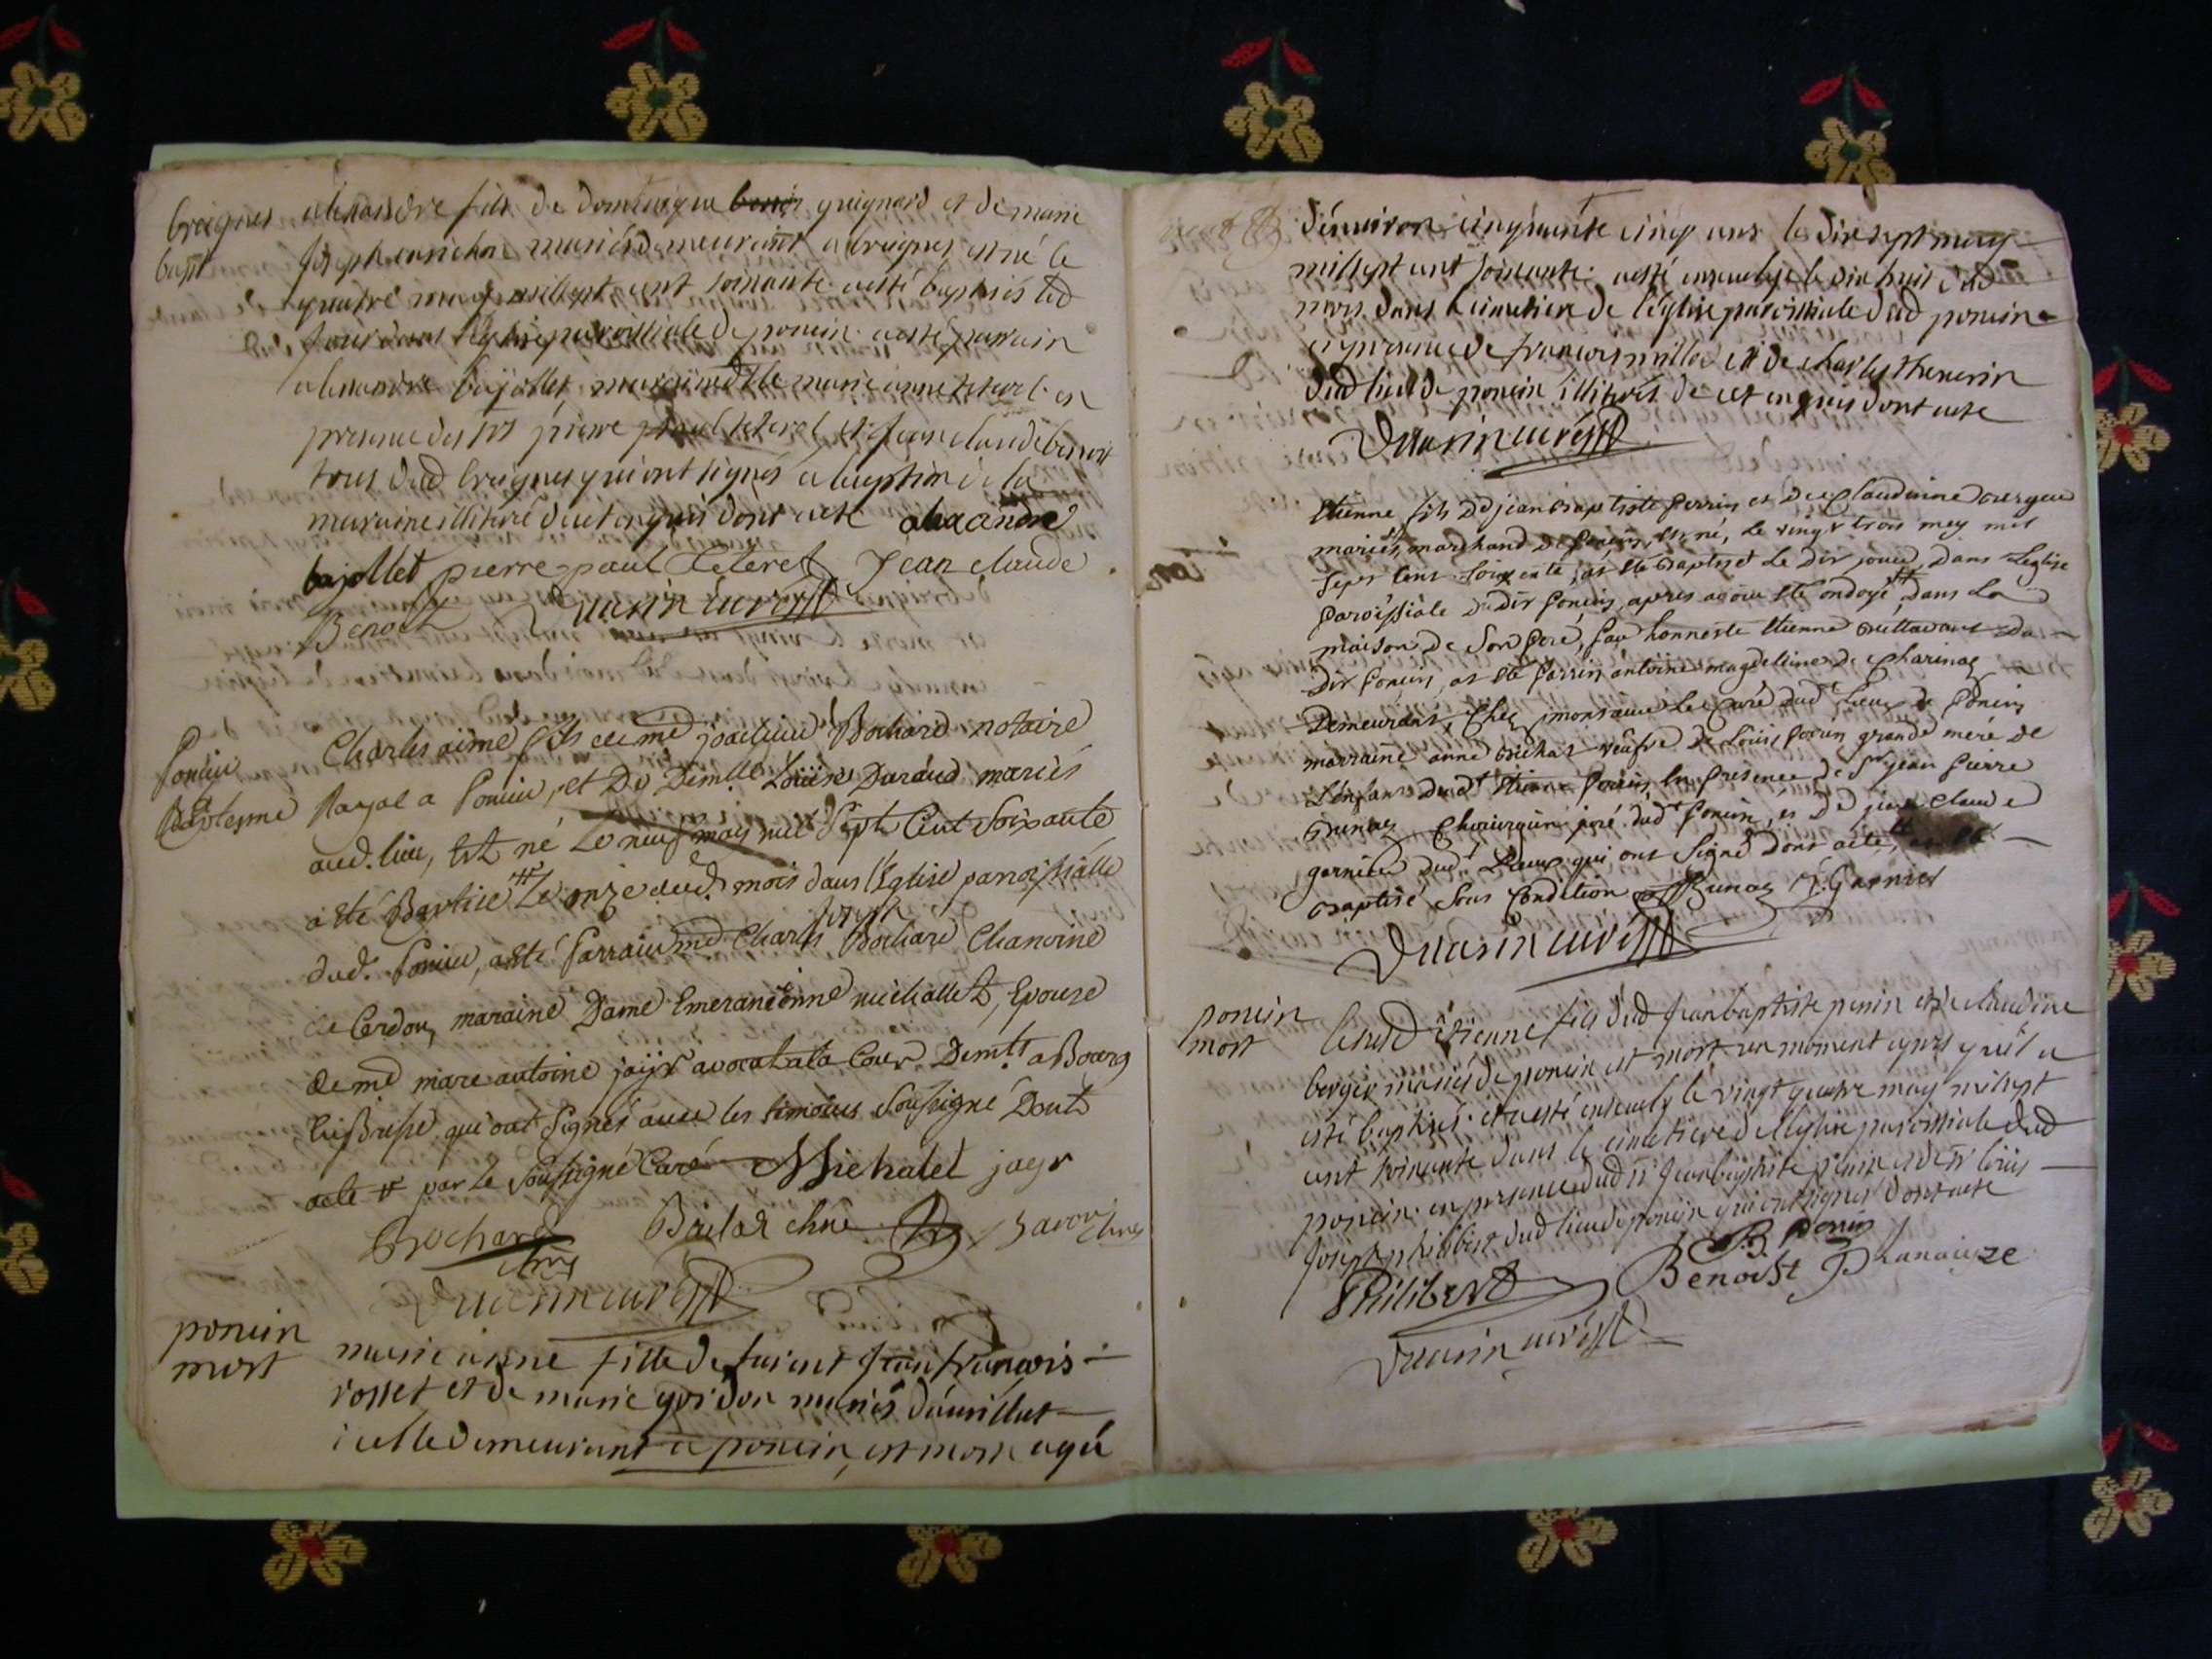 breignes
bapt
alexandre fils de dominique guignard et de marie
joseph mariés demeurant a breignes est né le
quatre may mil sept cent soixante a esté baptisés led
jour dans l'église paroissiale de poncin a esté parrain
alexandre bajollet marraine dlle marie anne teteret en
presence des srs pierre paul teteret et jean claude benoit
tous dud breignes qui ont signés a l'exeption de la
marraine illitiré de ce enquis dont acte alexandre
bajollet pierre paul Teteret Jean claude
Benoit Duarin curé
Poncin
Baptesme
Charles aimé fils de me joachim Bochard notaire
Royal a Poncin, et De Demlle Louise Daraud mariés
aud. lieu, Est né Le neuf may mil Sept Cent Soixante
a été Baptisé # Le onze dud. mois dans l'Eglise paroissialle
joseph
dud. Poncin, a esté Parrain me Charles Bochard Chanoine
de Cerdon, maraine Dame Emerancienne michallet, Epouze
de me marc antoine jayr avocat a la Cour Demt. a Bourg
En Bresse qui ont Signés avec les temoins Soussigné Dont
acte # par Le Soussigné Curé Michalet jayr
Bochard
Duarin curé
poncin
mort
marie anne fille de furent jean françois
rosset et de marie guidon mariés
icelle demeurant a poncin, est morte agée
d'environ cinquante cinq ans le dix sept may
mil sept cent soixante a esté ensevelye le dix huit dud
mois dans le cimetiere de l'église paroissiale dud poncin
en presence de francois millod et de charles thenerin
dud lieu de poncin illitirés de ce enquis dont acte
Duarin curé
Etienne fils De jean Baptiste Perrin et De Claudinne Bergeu
mariés, marchand de Poncin, est né, Le vingt trois mey mil
sept cens soixente, at été Baptisé Le dit jour, Dans L'eglise
Paroissiale du dit Poncin, apres avoir été ondoyé, Dans La
maison De Son Pere, Par honneste Etienne du
dit Poncin, at été Parrin antoine magdeleine De Charinaz
Demeurant, Chez monsieur Le Curé dud Lieu De Poncin
marraine anne Michat veufve De Louis Perrin grande mere De
L'enfant dudt Poncin, En Presence De Sr jean Pierre
Brunaz Chirurgien juré dudt Poncin, et De jean Claude
garnier dudt Lieu qui ont Signé Dont acte,
Baptisé Sous Condition Brunaz J. Garnier
Duarin curé
poncin
mort
le susd étienne fils dud jean baptiste perrin et de claudine
berger mariés de poncin est mort un moment apres qu'il a
esté baptisés et a esté ensevely le vingt quatre may mil sept
cent soixante dans le cimetiere de l'église paroissiale dud
poncin en presence dud sr jean baptiste perrin et de sr louis
joseph philibert dud lieu de poncin qui ont signés dont acte
Philibert B Perrin
Benoist
Duarin curé